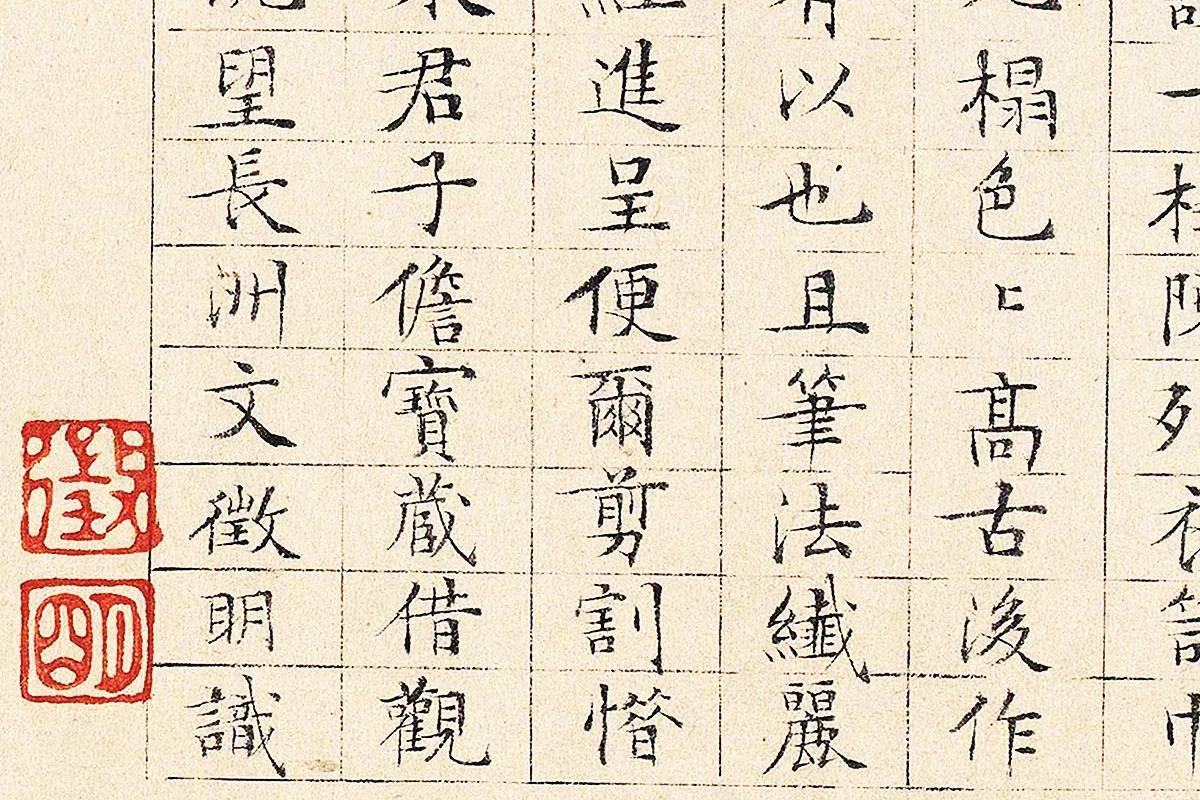 榻色〻高古後作
有以也且筆法纖麗
進呈便爾剪割憯
君子儋寶蔵借觀
望長洲文徵明識
徵
明